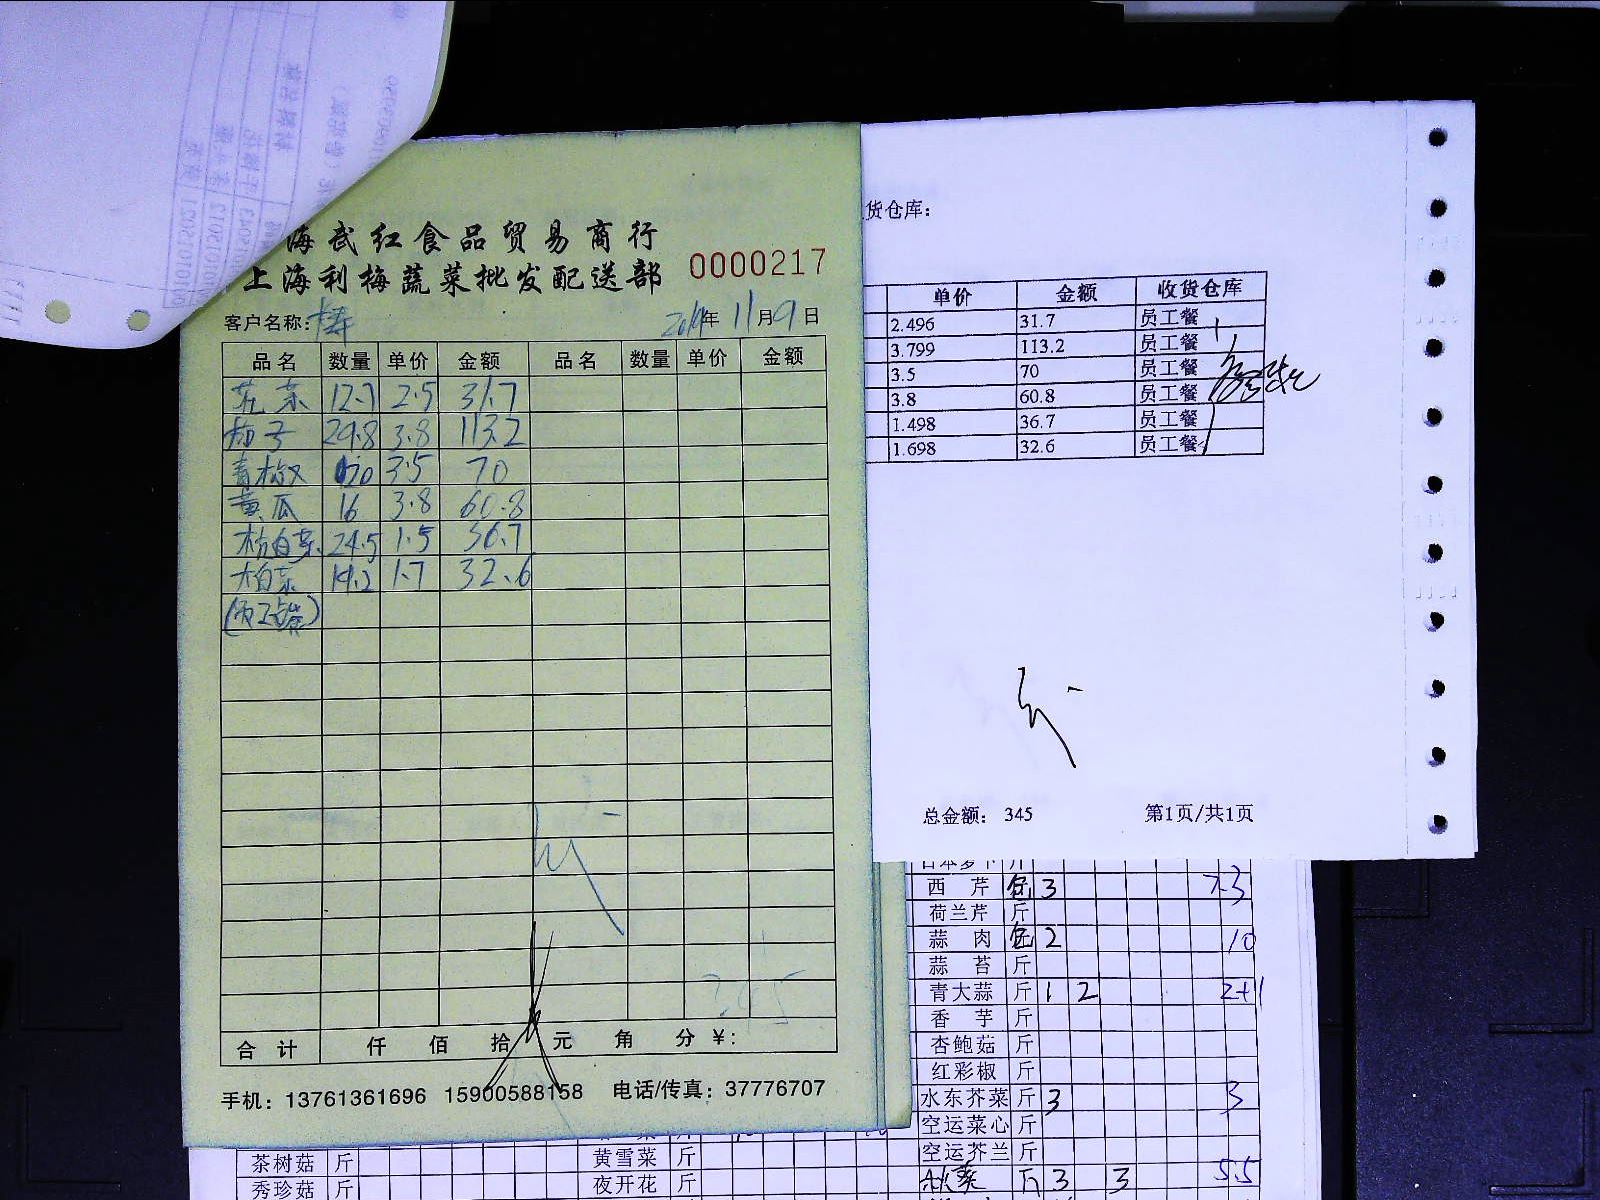 海武红食品贸易商行
上海利梅蔬菜批发配送部
0000217
客户名称:
2014年 11月9日
品名 数量 单价 金额 品名 数量 单价 金额
苋菜 12.7 2.5 31.7
茄子 29.8 3.8 113.2
青椒 20 3.5 70
黄瓜 16 3.8 60.8
杭白菜 24.5 1.5 36.7
大白菜 19.2 1.7 32.6
(员工餐)
345
合计 仟 佰 拾 元 角 分 ¥:
手机: 13761361696 15900588158 电话/传真: 37776707
货仓库:
单价 金额 收货仓库
2.496 31.7 员工餐
3.799 113.2 员工餐
3.5 70 员工餐
3.8 60.8 员工餐
1.498 36.7 员工餐
1.698 32.6 员工餐
总金额: 345 第1页/共1页
日本萝卜 斤
西芹 包 3 7.3
荷兰芹 斤
蒜肉 包 2 10
蒜苔 斤
青大蒜 斤 1 2 2+1
香芋 斤
杏鲍菇 斤
红彩椒 斤
水东芥菜 斤 3 3
空运菜心 斤
空运芥兰 斤
秋葵 斤 3 3 5.5
茶树菇 斤 黄雪菜 斤
秀珍菇 斤 夜开花 斤